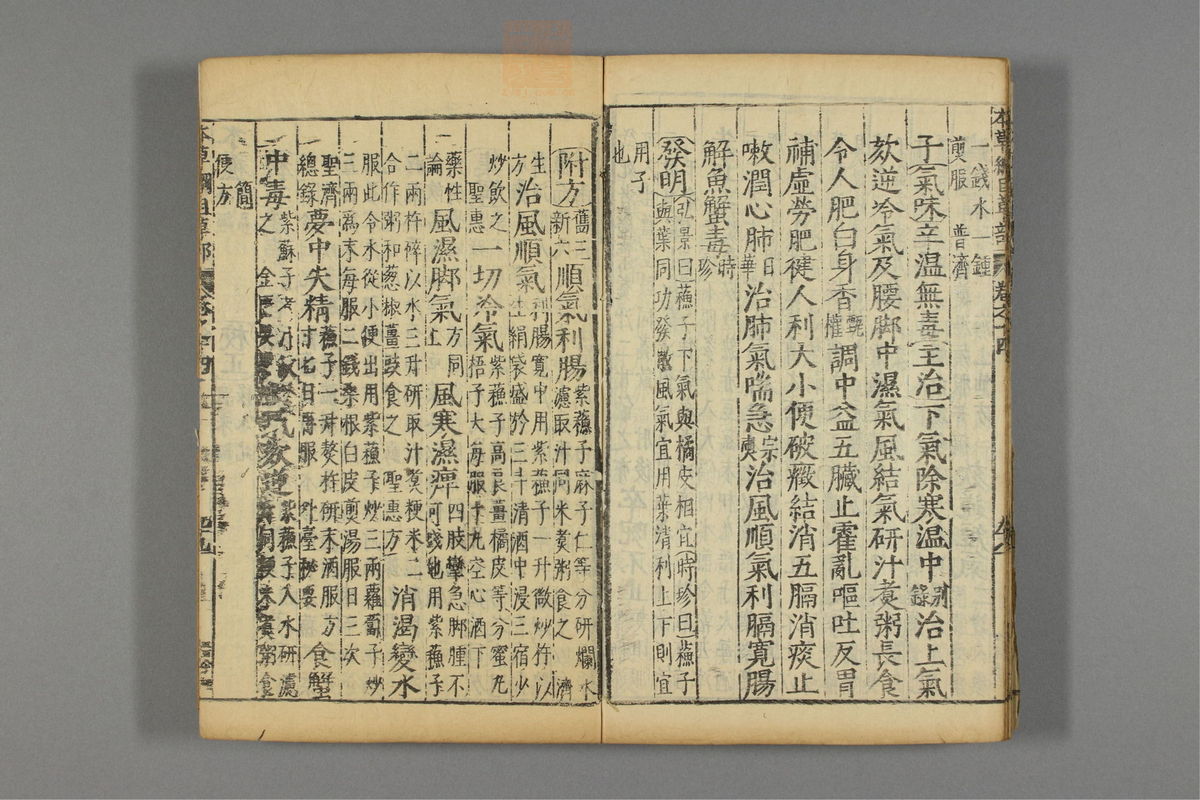 本草綱目草部 卷之十四
一錢水一鍾
煎服 普濟
子氣味辛溫無毒主治下氣除寒溫中別錄治上氣
欬逆冷氣及腰脚中濕氣風結氣研汁煮粥長食
令人肥白身香甄權調中益五臟止霍亂嘔吐反胃
補虛勞肥健人利大小便破癥結消五膈消痰止
嗽潤心肺日華治肺氣喘急宗奭治風順氣利膈寬腸
解魚蟹毒時珍
發明弘景曰蘇子下氣與橘皮相宜時珍曰蘇子
與葉同功發散風氣宜用葉清利上下則宜
用子
也
附方舊三新六順氣利腸紫蘇子麻子仁等分研爛水
濾取汁同米煮粥食之 濟
生方治風順氣利腸寬中用紫蘇子一升微炒杵以
生絹袋盛於三斗清酒中浸三宿少
少飲之 聖惠一切冷氣紫蘇子高良薑橘皮等分蜜丸
梧子大每服十丸空心酒下
藥性論風濕脚氣方同上風寒濕痹四肢攣急脚腫不
可踐地用紫蘇子
二兩杵碎以水三升研取汁煮粳米二
合作粥和葱椒薑豉食之 聖惠方消渴變水
服此令水從小便出用紫蘇子炒三兩蘿蔔子炒
三兩爲末每服二錢桑根白皮煎湯服日三次
聖濟總錄夢中失精蘇子一升熬杵研末酒服方
寸匕日再服 外臺秘要食蟹
中毒紫蘇子煮汁飲之 金匱要略上氣欬逆紫蘇子入水研濾
汁同粳米煮粥食
簡便方
本草綱目草部 卷之十四